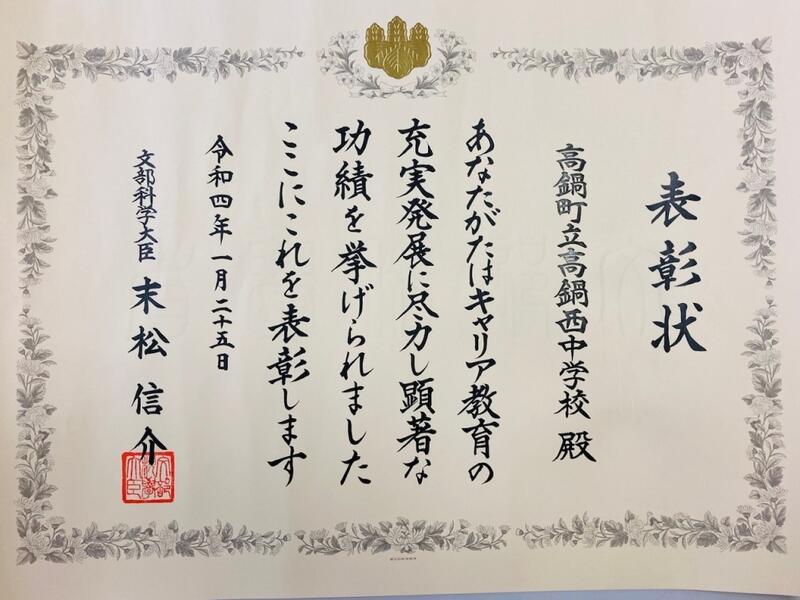 表彰状
高鍋町立高鍋西中学校 殿
あなたがたはキャリア教育の
充実発展に尽力し顕著な
功績を挙げられました
ここにこれを表彰します
令和四年一月二十五日
文部科学大臣 末松信介